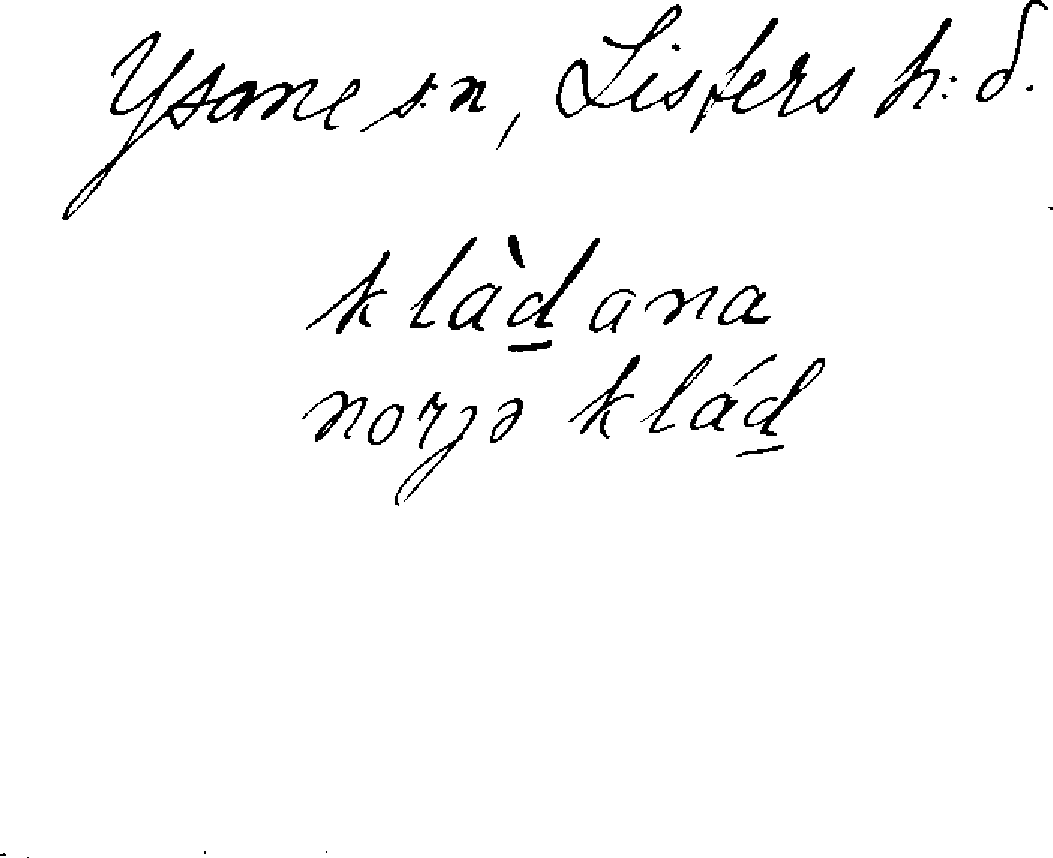 Ysane s:n, Listers h:d.
klàd̲ana
norȷə klád̲